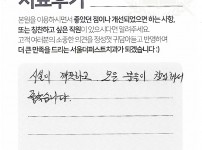 치료후기
본원을 이용하시면서 좋았던 점이나 개선되었으면 하는 사항,
또는 칭찬하고 싶은 직원이 있으시다면 알려주세요.
고객 여러분의 소중한 의견을 정성껏 귀담아듣고 반영하며
더 큰 만족을 드리는 서울더퍼스트치과가 되겠습니다:)
시설이 깨끗하고 모든 분들이 친절해서
좋았습니다.